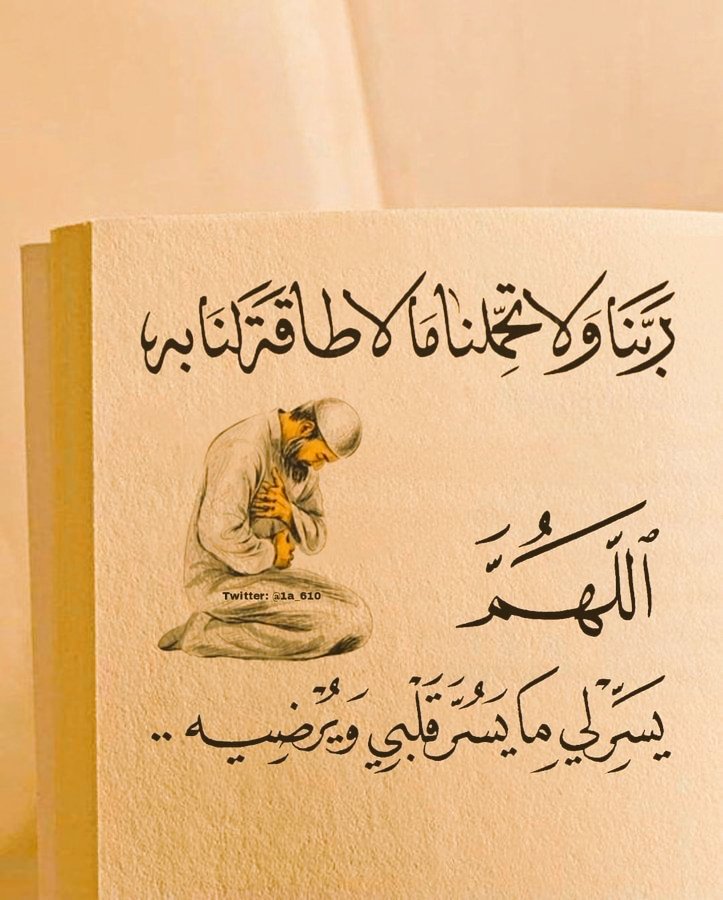 رَبَّنَا وَلَا تُحَمِّلْنَا مَا لَا طَاقَةَ لَنَا بِهِ
Twitter: @1a_610
ٱللَّهُمَّ
يَسِّرْ لِي مَا يَسُرُّ قَلْبِي وَيُرْضِيهِ ..